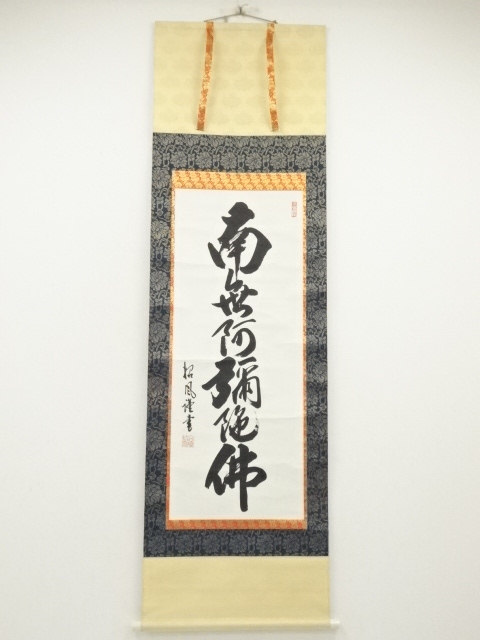 南無阿彌陀佛
招風謹書